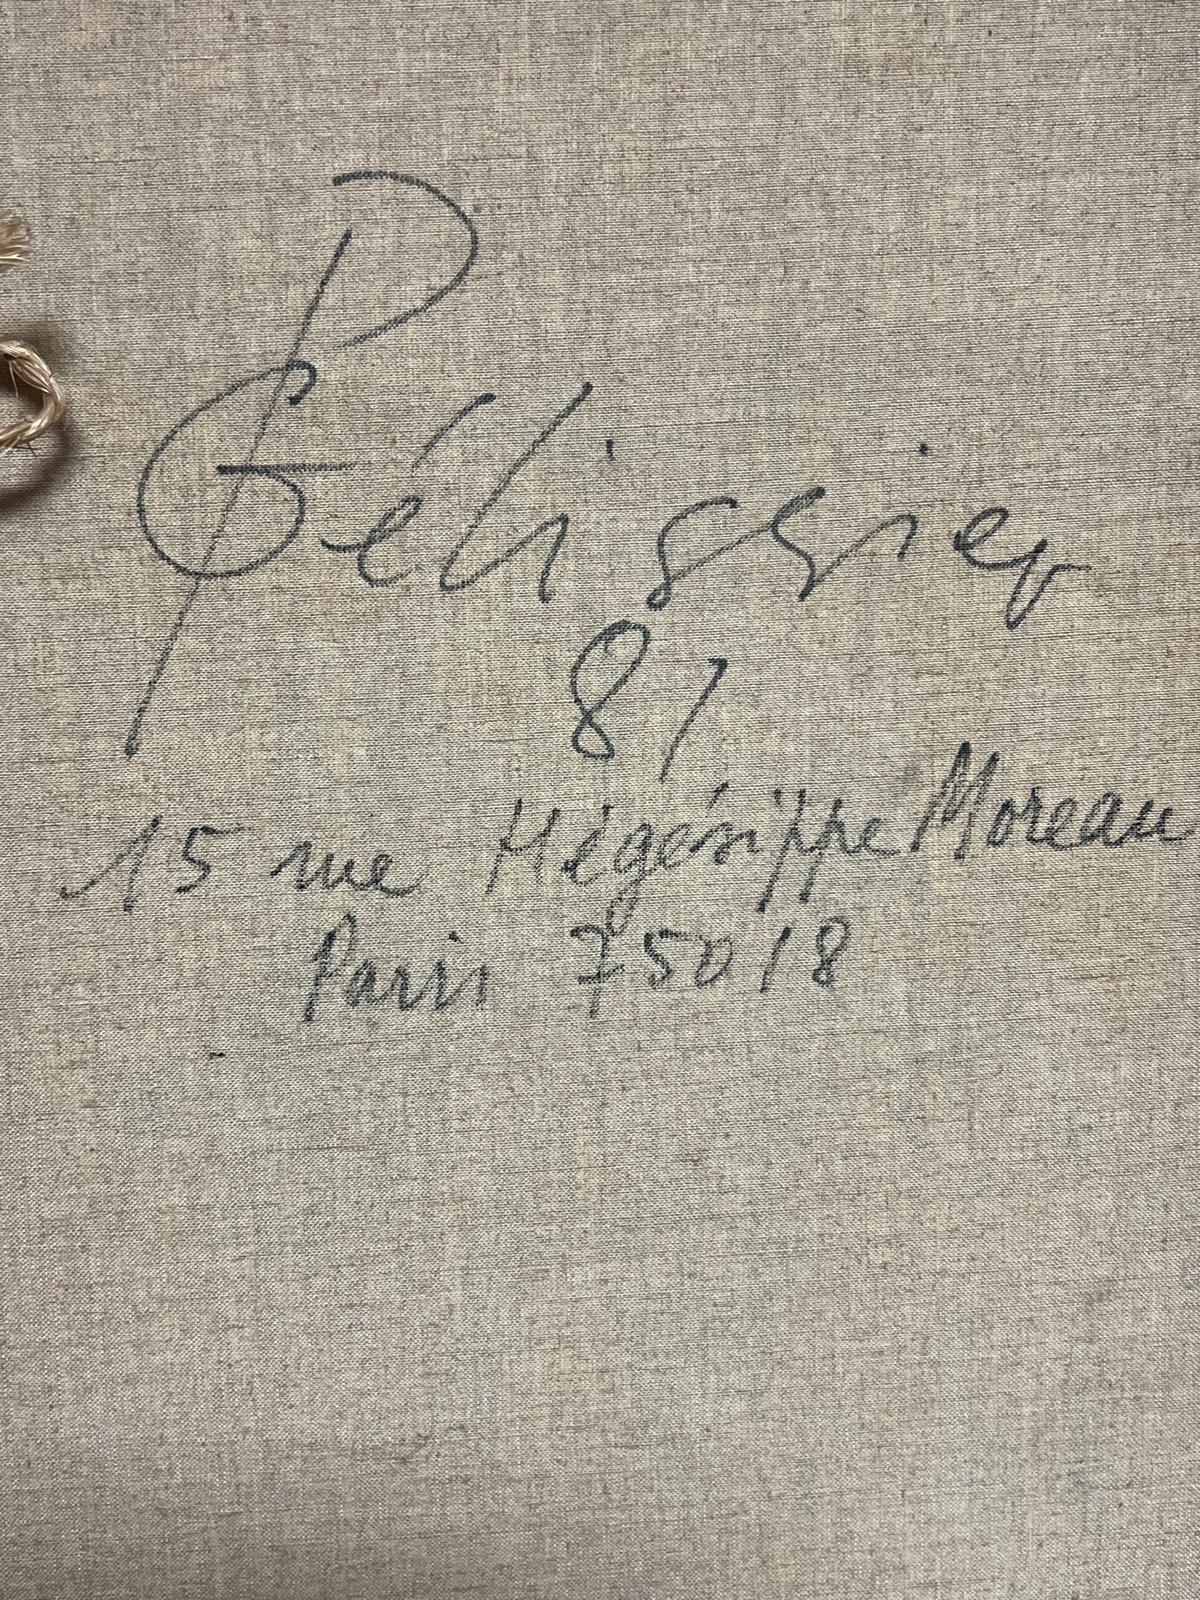 G Pélissier
81
15 rue Hégésippe Moreau
Paris 75018